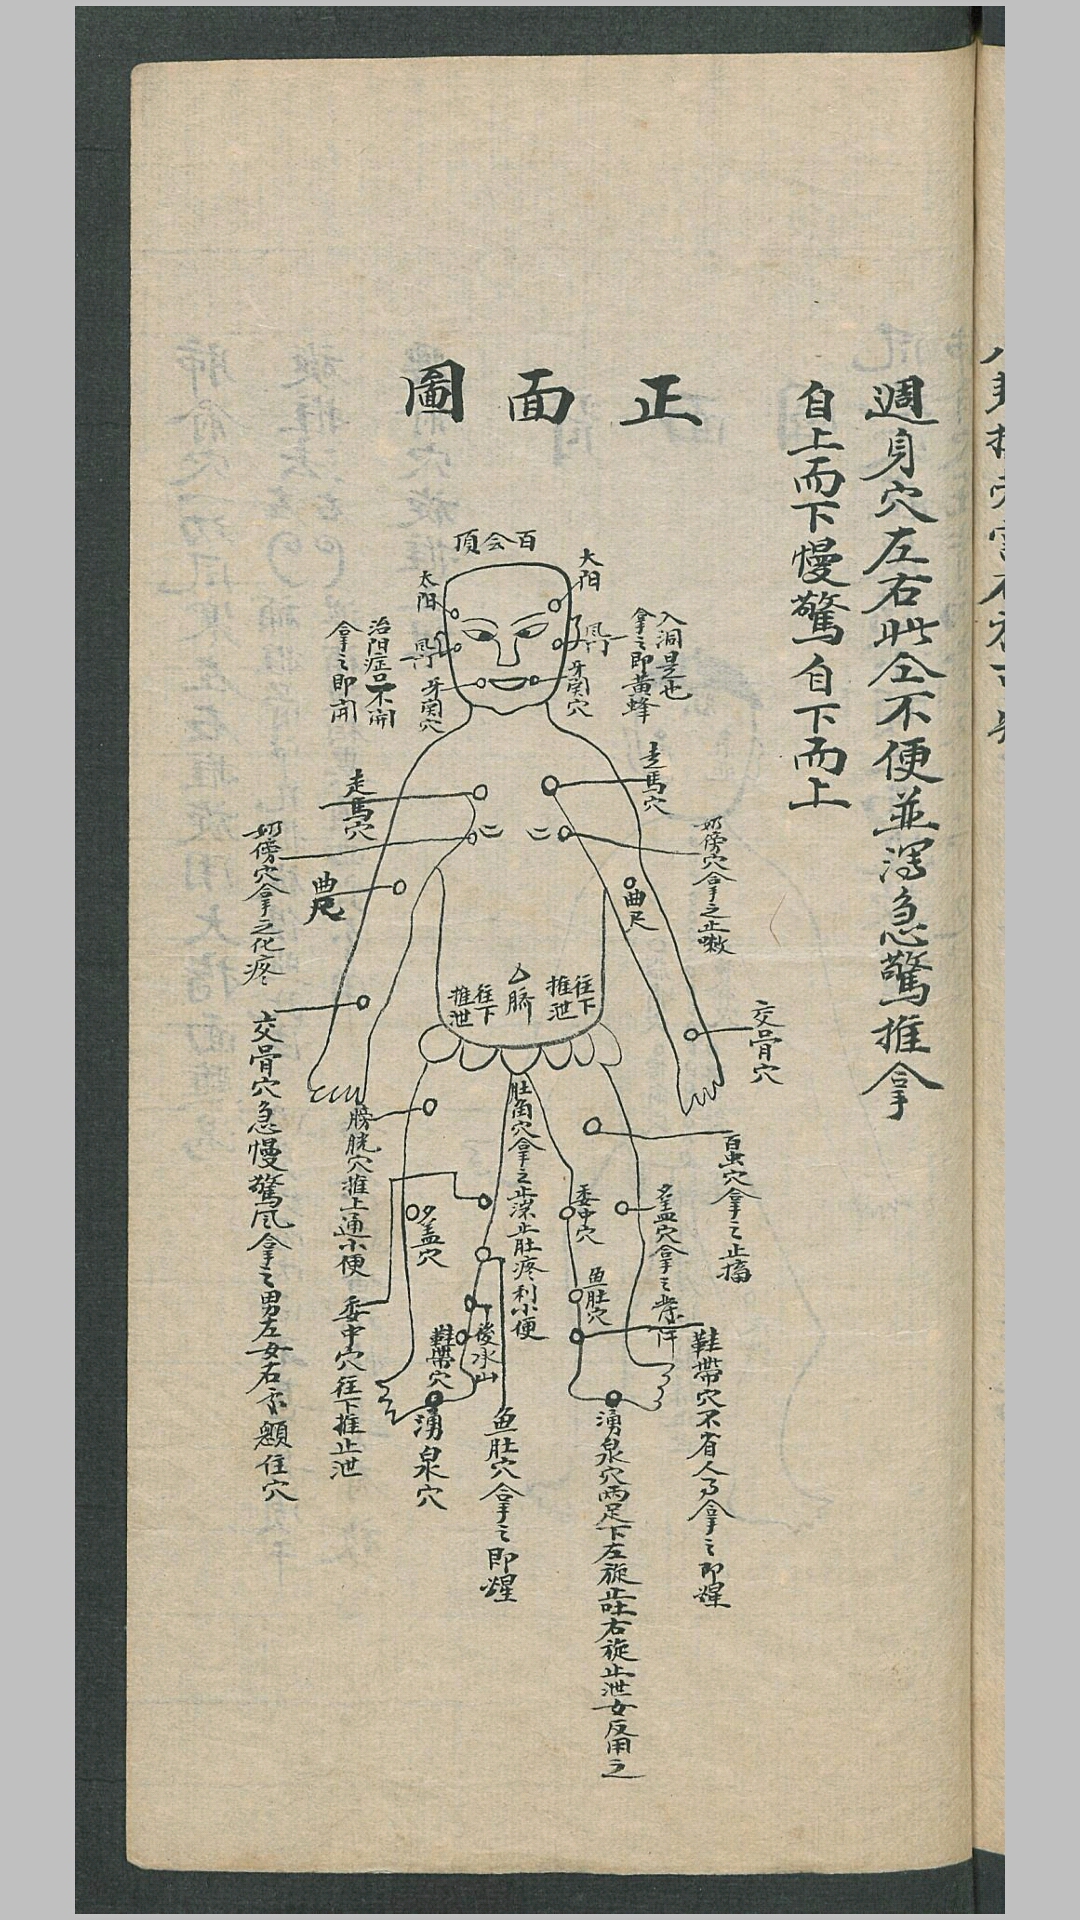 週身穴左右此仝不便並瀉急驚推拿
自上而下慢驚自下而上
正面圖
百会頂
大阳
太阳
風门
風门
牙関穴
牙関穴
入洞是也
拿之即黃蜂
治阳症口不開
拿之即開
走馬穴
走馬穴
奶傍穴拿之止嗽
奶傍穴拿之化疼
曲尺
曲尺
臍
往下
推泄
往下
推泄
交骨穴
交骨穴急慢驚风拿之男左女右
住穴
肚角穴拿之止瀉止肚疼利小便
膀胱穴推上通小便
百虫穴拿之止搐
委中穴
委中穴往下推止泄
穴拿之
魚肚穴
魚肚穴拿之即醒
後水山
鞋帶穴
鞋帶穴不省人事拿之即醒
湧泉穴
湧泉穴両足下左旋止吐右旋止泄女反用之